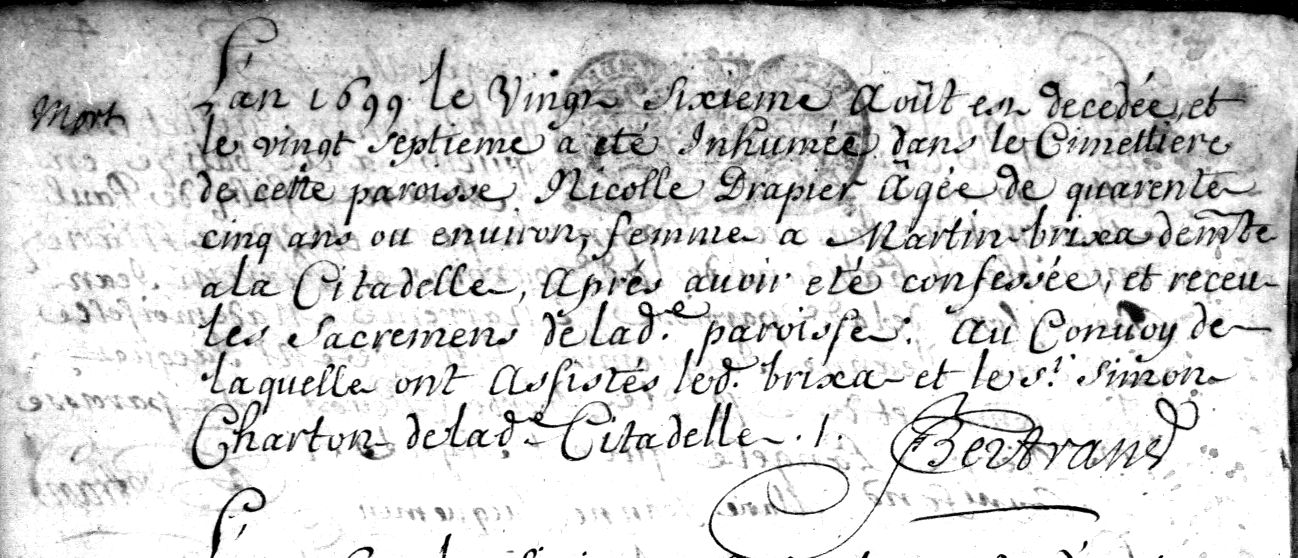 Mort
L'an 1699 le Vingt Sixieme Août est decedée, et
le vingt septieme a eté Inhumée dans le Cimettiere
de cette paroisse Nicolle Drapier Âgée de quarente
cinq ans ou environ, femme a Martin brixa demte
a la Citadelle, Aprés avoir eté confessée, et receu
les Sacremens de lad.e paroisse. au Convoy de
laquelle ont Assistés led. brixa et le sr. Simon
Charton de lad.e Citadelle ./.
Bertrand